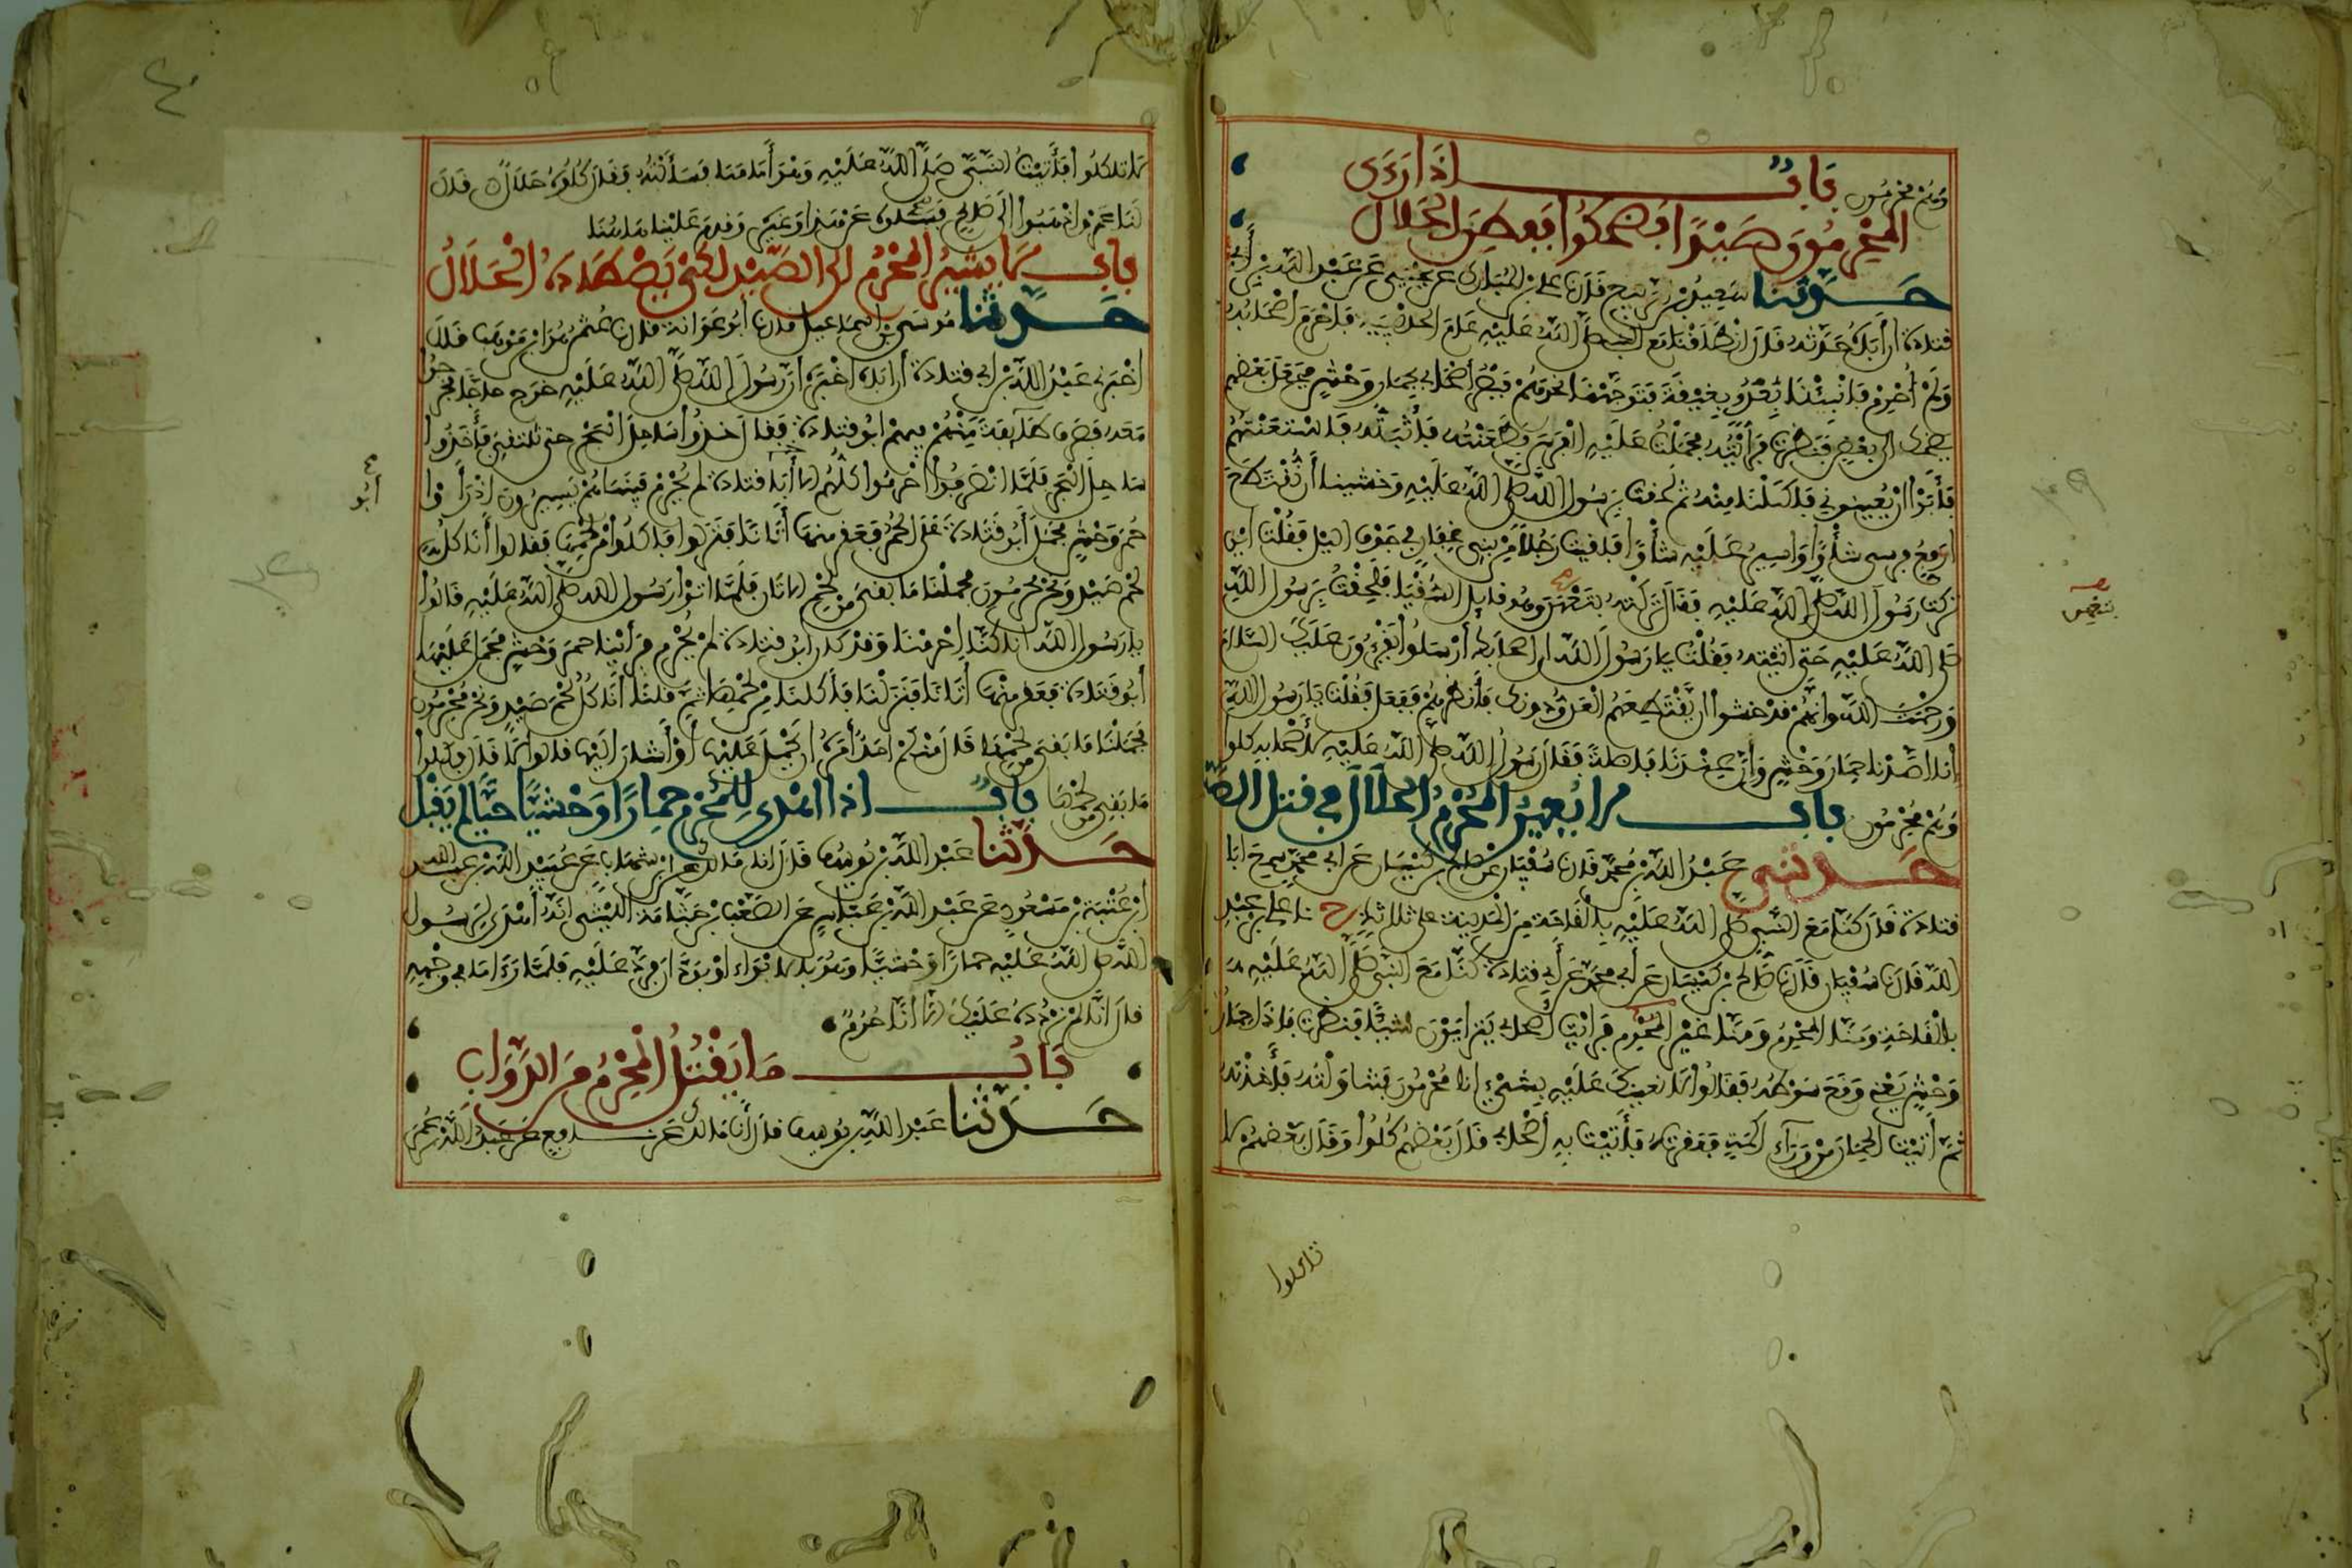 وهم محرمون باب اذا رءى
المحرمون صيدا فضحكوا ففطن الحلال
حدثنا سعيد بن الربيع قال نا علي بن المبارك عن يحيى عن عبد الله بن أبي
قتادة ان أباه حدثه قال انطلقنا مع النبي صلى الله عليه عام الحديبية فاحرم أصحابه
ولم أحرم فانبئنا بعدو بغيقة فتوجهنا نحوهم فبصر أصحابي بحمار وحش فجعل بعضهم
يضحك الى بعض فنظرت فرأيته فحملت عليه الفرس فطعنته فأثبته فاستعنتهم
فأبوا ان يعينوني فاكلنا منه ثم لحقت برسول الله صلى الله عليه وخشينا أن نقتطع
ارفع فرسي شأوا واسير عليه شأوا فلقيت رجلا من بني غفار في جوف اليل فقلت اين
تركت رسول الله صلى الله عليه فقال تركته بتعهن وهو قايل السقيا فلحقت برسول الله
صلى الله عليه حتى اتيته فقلت يا رسول الله ان اصحابك أرسلوا يقرءون عليك السلام
ورحمت الله وانهم قد خشوا ان يقتطعهم العدو دونك فأنظرهم ففعل فقلت يا رسول الله
إنا اصدنا حمار وحش وإن عندنا فاضلة فقال رسول الله صلى الله عليه لأصحابه كلوا
وهم محرمون باب لا يعين المحرم الحلال في قتل الصيد
حدثني عبد الله بن محمد قال نا سفيان عن صالح بن كيسان عن ابي محمد سمع ابا
قتادة قال كنا مع النبي صلى الله عليه بالقاحة من المدينة على ثلاث ح نا علي بن عبد
الله قال نا سفيان قال نا صالح بن كيسان عن أبي محمد عن أبي قتادة كنا مع النبي صلى الله عليه
بالقاحة ومنا المحرم ومنا غير المحرم فرايت أصحابي يتراءون شيئا فنظرت فاذا حمار
وحش يعني وقع سوطه فقالوا لا نعينك عليه بشيء انا محرمون فتناولته فأخذته
ثم أتيت الحمار من ورآء اكمة فعقرته فأتيت به أصحابي قال بعضهم كلوا وقال بعضهم لا
تاكلوا
بتعهن
لا تاكلوا فأتيت النبي صلى الله عليه وهو أمامنا فسألته فقال كلوه حلال قال
لنا عمرو اذهبوا الى صالح فسلوه عن هذا وغيره وقدم علينا هاهنا
باب لا يشير المحرم الى الصيد لكي يصطاده الحلال
حدثنا موسى بن اسماعيل قال نا أبو عوانة قال نا عثمن هو ابن موهب قال
اخبرني عبد الله بن أبي قتادة أن أباه اخبره ان رسول الله صلى الله عليه خرج حاجا فخرجوا
معه فصرف طآيفة منهم فيهم ابو قتادة فقال خذوا ساحل البحر حتى نلتقي فأخذوا
ساحل البحر فلما انصرفوا احرموا كلهم الا أبا قتادة لم يحرم فبينما هم يسيرون اذ رأوا
حمر وحش فحمل أبو قتادة على الحمر فعقر منها أتانا فنزلوا فاكلوا من لحمها فقالوا أناكل
لحم صيد ونحن محرمون فحملنا ما بقي من لحم الاتان فلما اتوا رسول الله صلى الله عليه قالوا
يا رسول الله انا كنا احرمنا وقد كان ابو قتادة لم يحرم فرأينا حمر وحش فحمل عليها
أبو قتادة فعقر منها أتانا فنزلنا فأكلنا من لحمها ثم قلنا أناكل لحم صيد ونحن محرمون
فحملنا ما بقي من لحمها قال منكم احد أمره ان يحمل عليها أو أشار اليها قالوا لا قال فكلوا
ما بقي من لحمها باب اذا اهدي للمحرم حمارا وحشيا حيا لم يقبل
حدثنا عبد الله بن يوسف قال انا مالك عن ابن شهاب عن عبيد الله بن عبد الله
ابن عتبة بن مسعود عن عبد الله بن عباس عن الصعب بن جثامة الليثي انه أهدى لرسول
الله صلى الله عليه حمارا وحشيا وهو بالابواء او بودان فرده عليه فلما رءا ما في وجهه
قال انا لم نردده عليك الا انا حرم
باب ما يقتل المحرم من الدواب
حدثنا عبد الله بن يوسف قال أنا مالك عن نافع عن عبد الله بن عمر
أبو